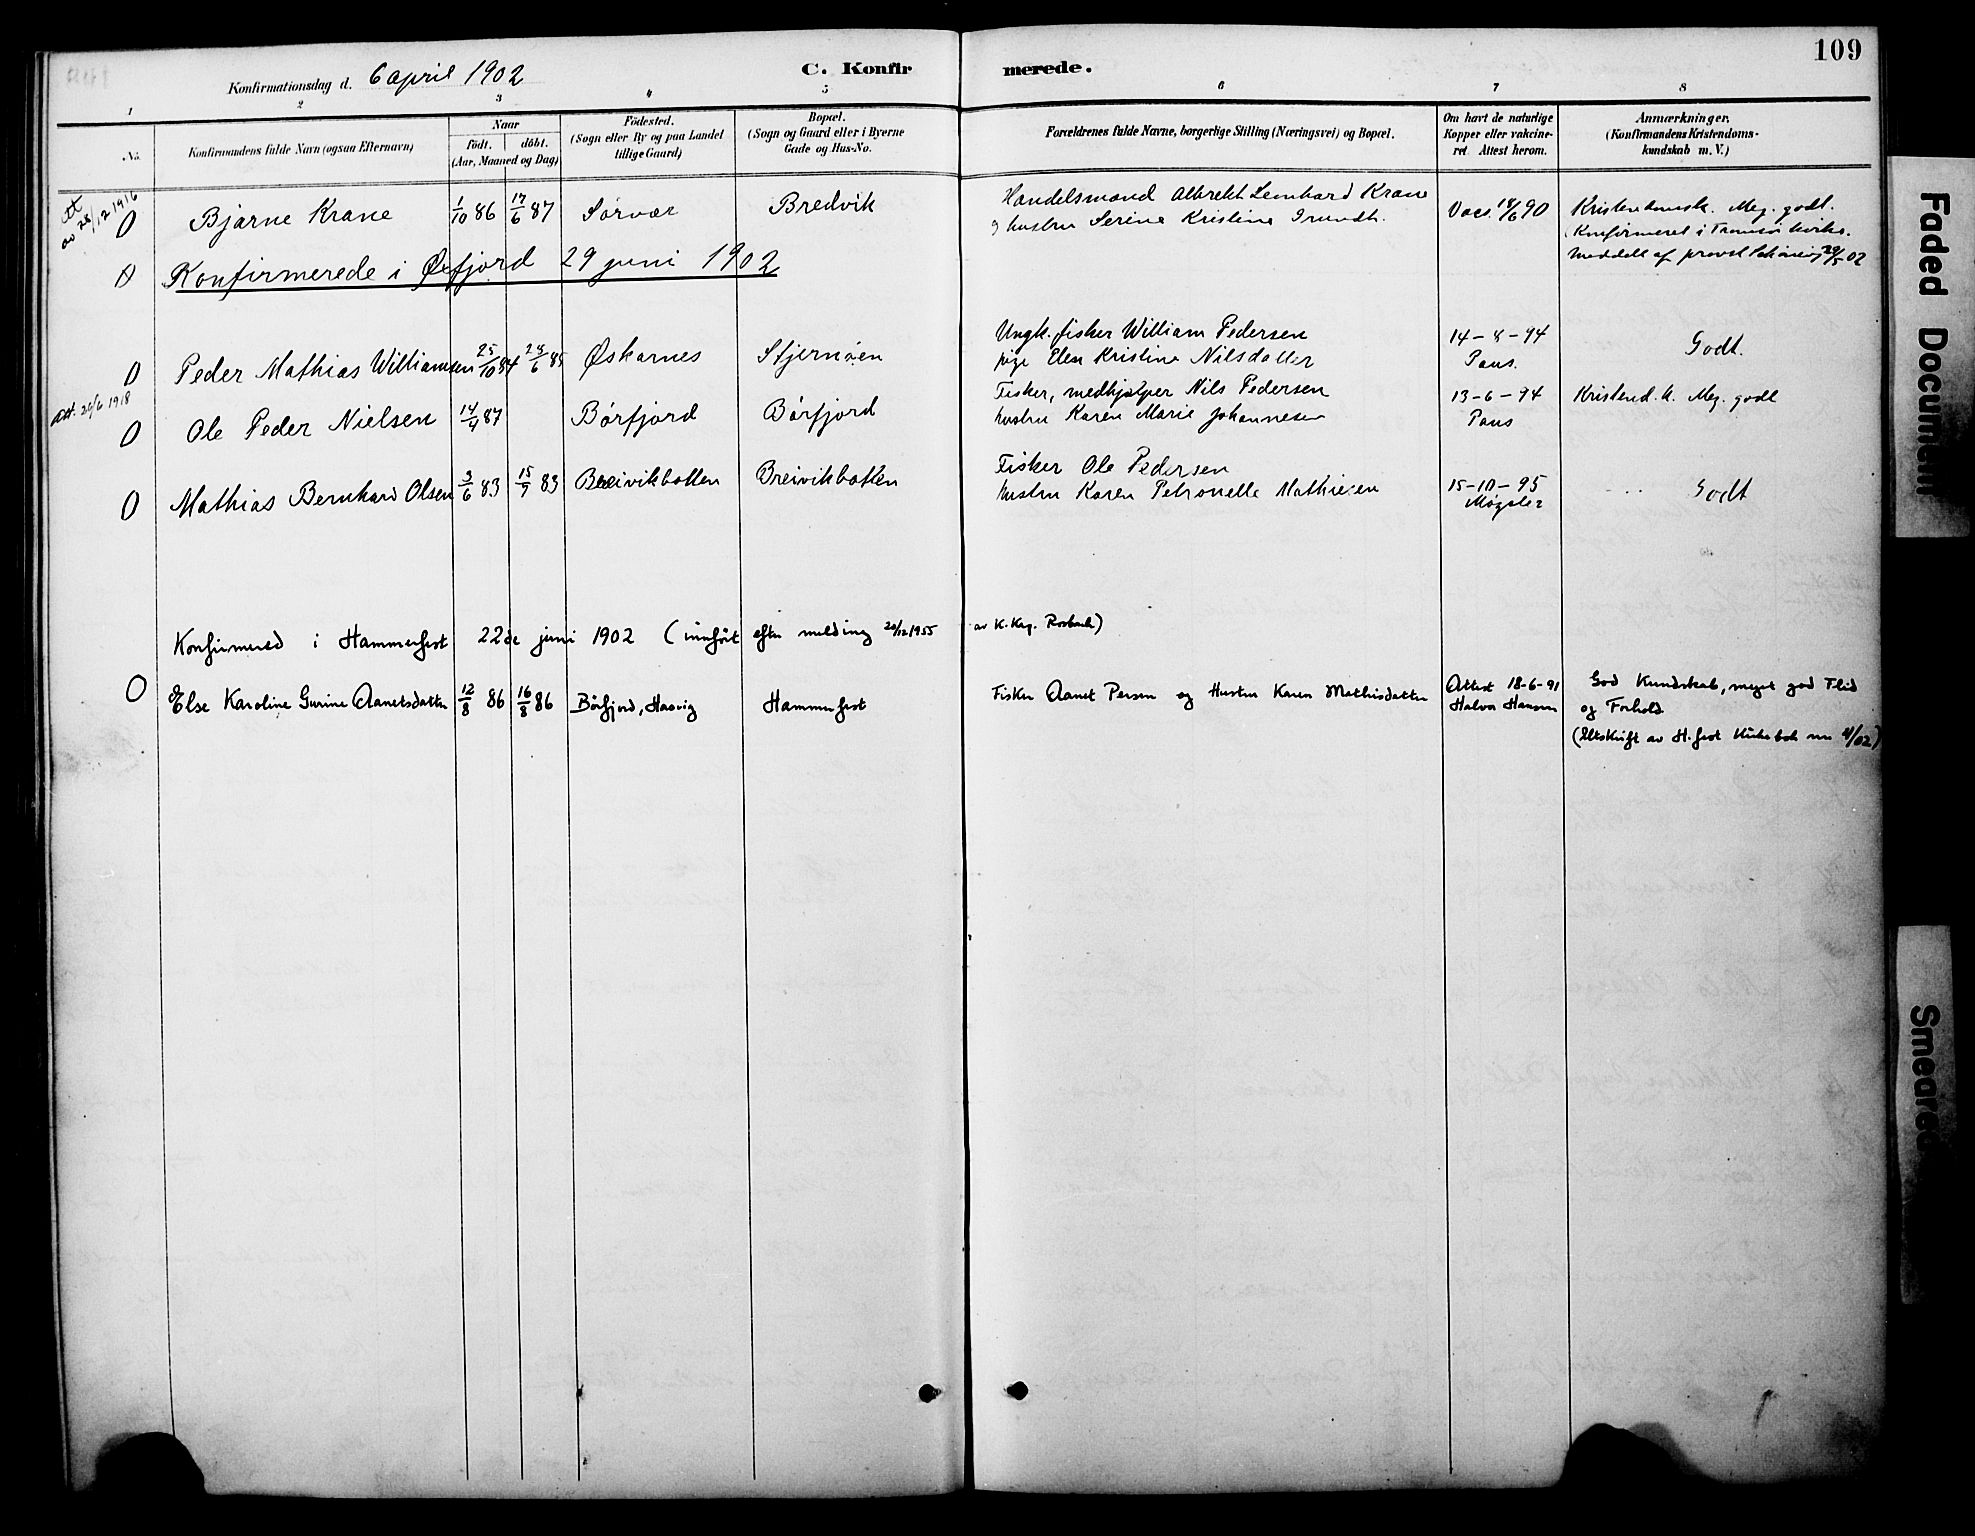 109
Konfirmationsdag d. 6 april 1902
C. Konfirmerede.
1 2 3 4 5 6 7 8
No.
Konfirmandens fulde Navn (ogsaa Efternavn)
Naar
födt. döbt.
(Aar, Maaned og Dag)
Födested.
(Sogn eller By og paa Landet
tillige Gaard)
Bopæl.
(Sogn og Gaard eller i Byerne
Gade og Hus-No.
Forældrenes fulde Navne, borgerlige Stilling (Næringsvei) og Bopæl.
Om havt de naturlige
Kopper eller vakcine-
ret Attest herom.
Anmærkninger.
(Konfirmandens Kristendoms-
kundskab m. V.)
Att
av 28/12 1916
0 Bjarne Krane 1/10 86 17/6 87 Sørvær Bredvik
Handelsmand Albrekt Lernhard Krane
og hustru Serine Kristine
Vacs. 18/6 90
Kristendomsk. Meg. godt.
Konfirmeret i Tromsø kirke.
Meddelt af provst 29/5 02
0 Konfirmerede i Øxfjord 29 juni 1902
0 Peder Mathias Williamsen 25/10 84 28/6 85 Øskarnes Stjernøen
Ungk. fisker William Pedersen
pige Elen Kristine Nilsdatter
14-8-94
Paus.
Godt.
Att. 20/6 1918
0 Ole Peder Nielsen 14/4 87 Børfjord Børfjord
Fisker, medhjælper Nils Pedersen
hustru Karen Marie Johannesen
13-6-94
Paus
Kristend.k. Meg. godt
0 Mathias Bernhard Olsen 3/6 83 15/7 83 Breivikbotten Breivikbotten
Fisker Ole Pedersen
hustru Karen Petronelle Mathiesen
15-10-95
Møgster
Godt
Konfirmered i Hammerfest 22de juni 1902 (innført efter melding 20/12 1955 av K.Kag. Rosbach)
0 Else Karoline Gurine Aanetsdatter 12/8 86 16/8 86 Børfjord, Hasvig Hammerfest
Fisker Aanet Persen og Hustru Karen Mathisdatter
Attest 18-6-91
Halvor Hansen
God Kundskab, meget god Flid
og Forhold
(Utskrift av H.fest Kirkebok 4/02)
Faded Document
Smeared